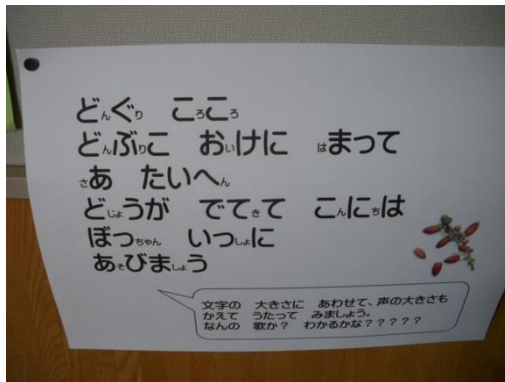 どんぐり ころころ
どんぶりこ おいけに はまって
さあ たいへん
どじょうが でてきて こんにちは
ぼっちゃん いっしょに
あそびましょう
文字の 大きさに あわせて、声の大きさも
かえて うたって みましょう。
なんの 歌か? わかるかな?????